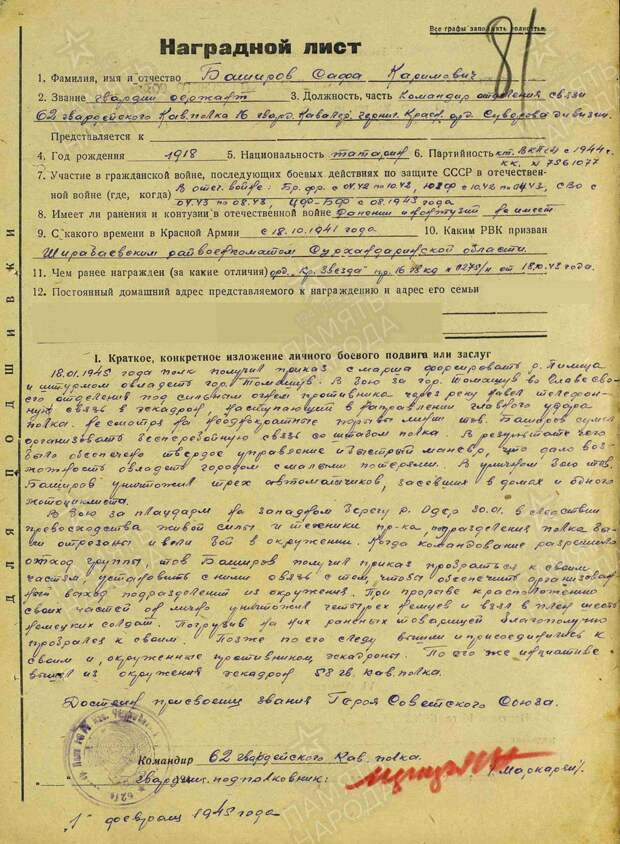 Все графы заполнять полностью
81
Наградной лист
1. Фамилия, имя и отчество Баширов Сафа Каримович
2. Звание гвардии сержант 3. Должность, часть командир отделения связи
62 гвардейского Кав. полка 16 гвард. Кавалер. черниг. Красн. орд. Суворова дивизии
Представляется к
4. Год рождения 1918 5. Национальность татарин 6. Партийность кт. ВКП(б) с 1944 г.
кк. № 7561077
7. Участие в гражданской войне, последующих боевых действиях по защите СССР в отечествен-
ной войне (где, когда) В отеч. войне: Бр. фр. с 07.42 по 10.42, ЮЗФ с 10.42 по СВО с
по 08.43, ЦФ-БФ с 08.1943 года
8. Имеет ли ранения и контузии в отечественной войне ранении и контузий не имеет
9. С какого времени в Красной Армии с 18.10.1941 года 10. Каким РВК призван
Ширабаевским райвоенкоматом Сурхандаринской области.
11. Чем ранее награжден (за какие отличия) орд. "Кр. Звезда" пр. 16 гв кд от года
12. Постоянный домашний адрес представляемого к награждению и адрес его семьи
I. Краткое, конкретное изложение личного боевого подвига или заслуг
18.01.1945 года полк получил приказ с марша форсировать р. Пилица
и штурмом овладеть гор. Томашув. В бою за гор. Томашув во главе сво-
его отделения под сильным огнем противника через реку навел телефон-
ную связь в эскадрон, наступающей в направлении главного удара
полка. Несмотря на неоднократные порывы линии тов. Баширов сумел
организовать бесперебойную связь со штабом полка. В результате чего
было обеспечено твердое управление и быстрый маневр, что дало воз-
можность овладеть городом с малыми потерями. В уличном бою тов.
Баширов уничтожил трех автоматчиков, засевших в домах и одного
мотоциклиста.
В бою за плацдарм на западном берегу р. Одер 30.01. в следствии
превосходства живой силы и техники пр-ка, подразделения полка бы-
ли отрезаны и вели бой в окружении. Когда командование разрешило
отход группы, тов Баширов получил приказ прорваться к своим
частям, установить с ними связь с тем, чтобы обеспечить организован-
ный выход подразделений из окружения. При прорыве к расположению
своих частей он лично уничтожил четырех немцев и взял в плен шесть
немецких солдат. Погрузив на них раненых товарищей благополучно
прорвался к своим. Позже по его следу вышли и присоединились к
своим и, окруженные противником, эскадроны. По его же инициативе
вышел из окружения эскадрон 58 гв. кав. полка.
Достоин присвоения звания Героя Советского Союза.
Командир 62 гвардейского Кав. полка
гвардии подполковник: /Маркарян/.
"1" февраля 1945 года
ДЛЯ ПОДШИВКИ
ПАМЯТЬ НАРОДА